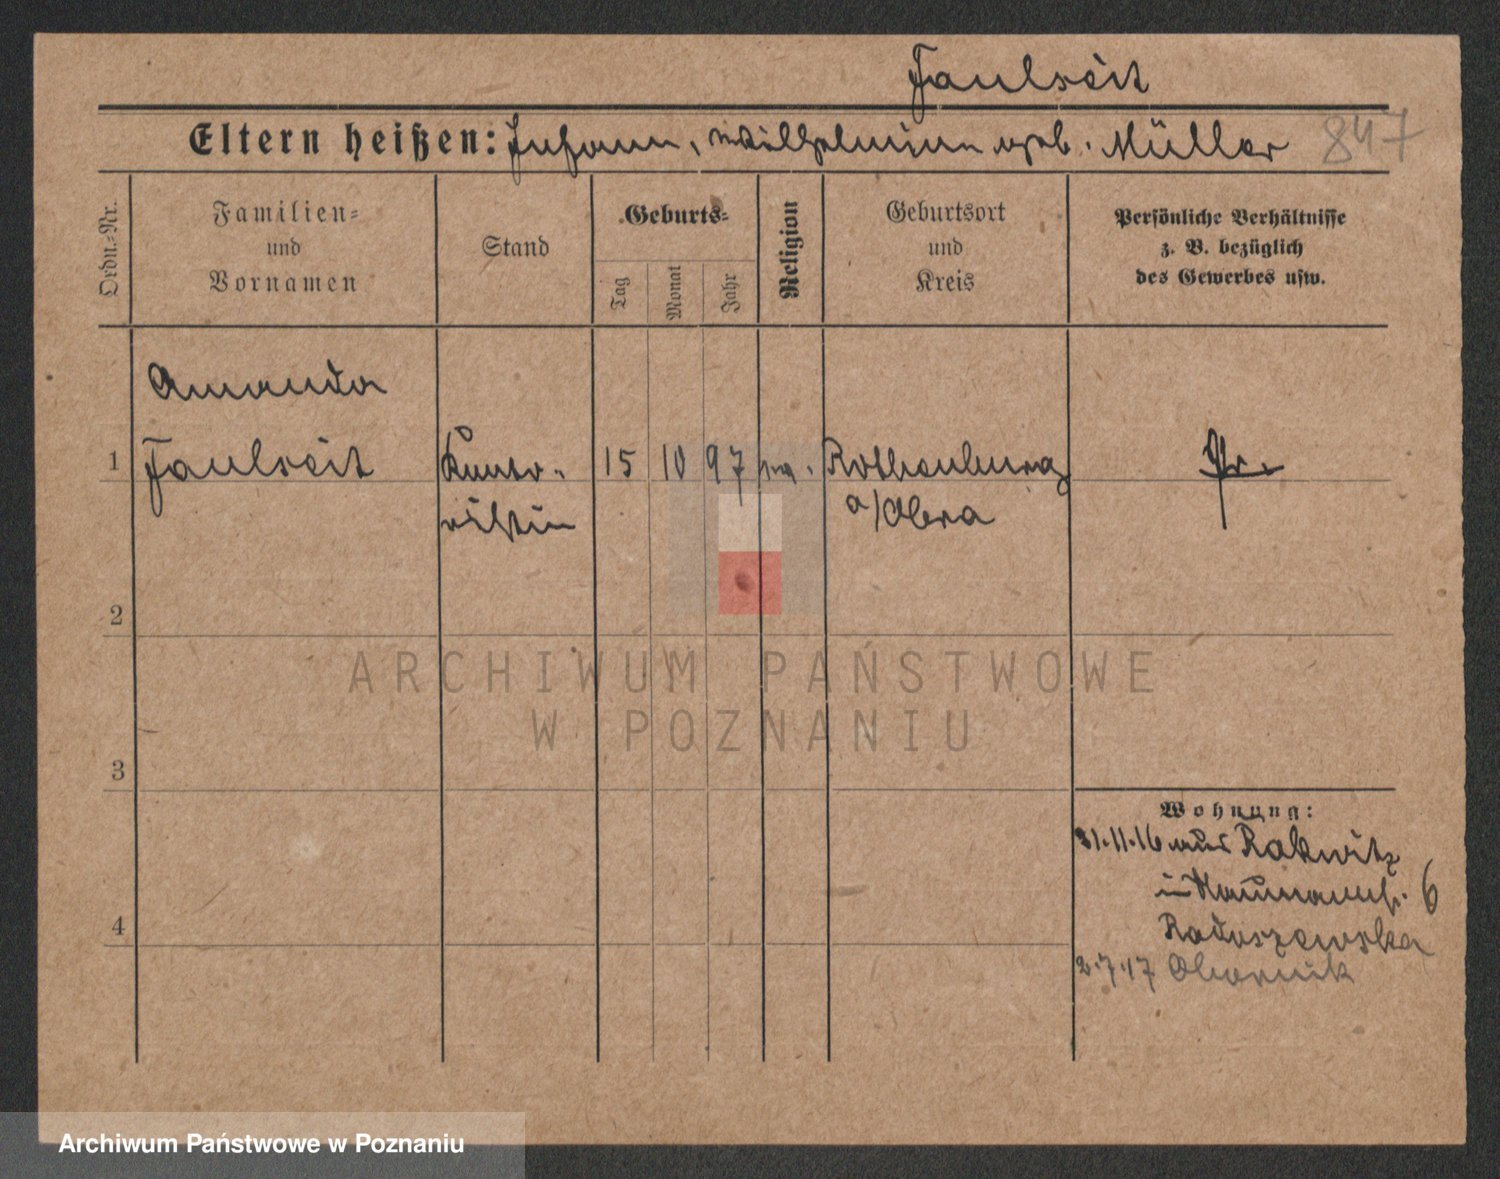 Faulseit
Eltern heißen: Johann, Wilhelmine geb. Müller 847
Ordn.-Nr.
Familien-
und
Vornamen
Stand
Geburts-
Tag
Monat
Jahr
Religion
Geburtsort
und
Kreis
Persönliche Verhältnisse
z. B. bezüglich
des Gewerbes usw.
Amanda
1 Faulseit Konto- 15 10 97 ev. Rothenburg Pr.
ristin a/Obra
2
ARCHIWUM PAŃSTWOWE
W POZNANIU
3
Wohnung:
31.11.16 aus Rakwitz
in Naumannstr. 6
4
Radoszewska
2.7.17 Obornik
Archiwum Państwowe w Poznaniu